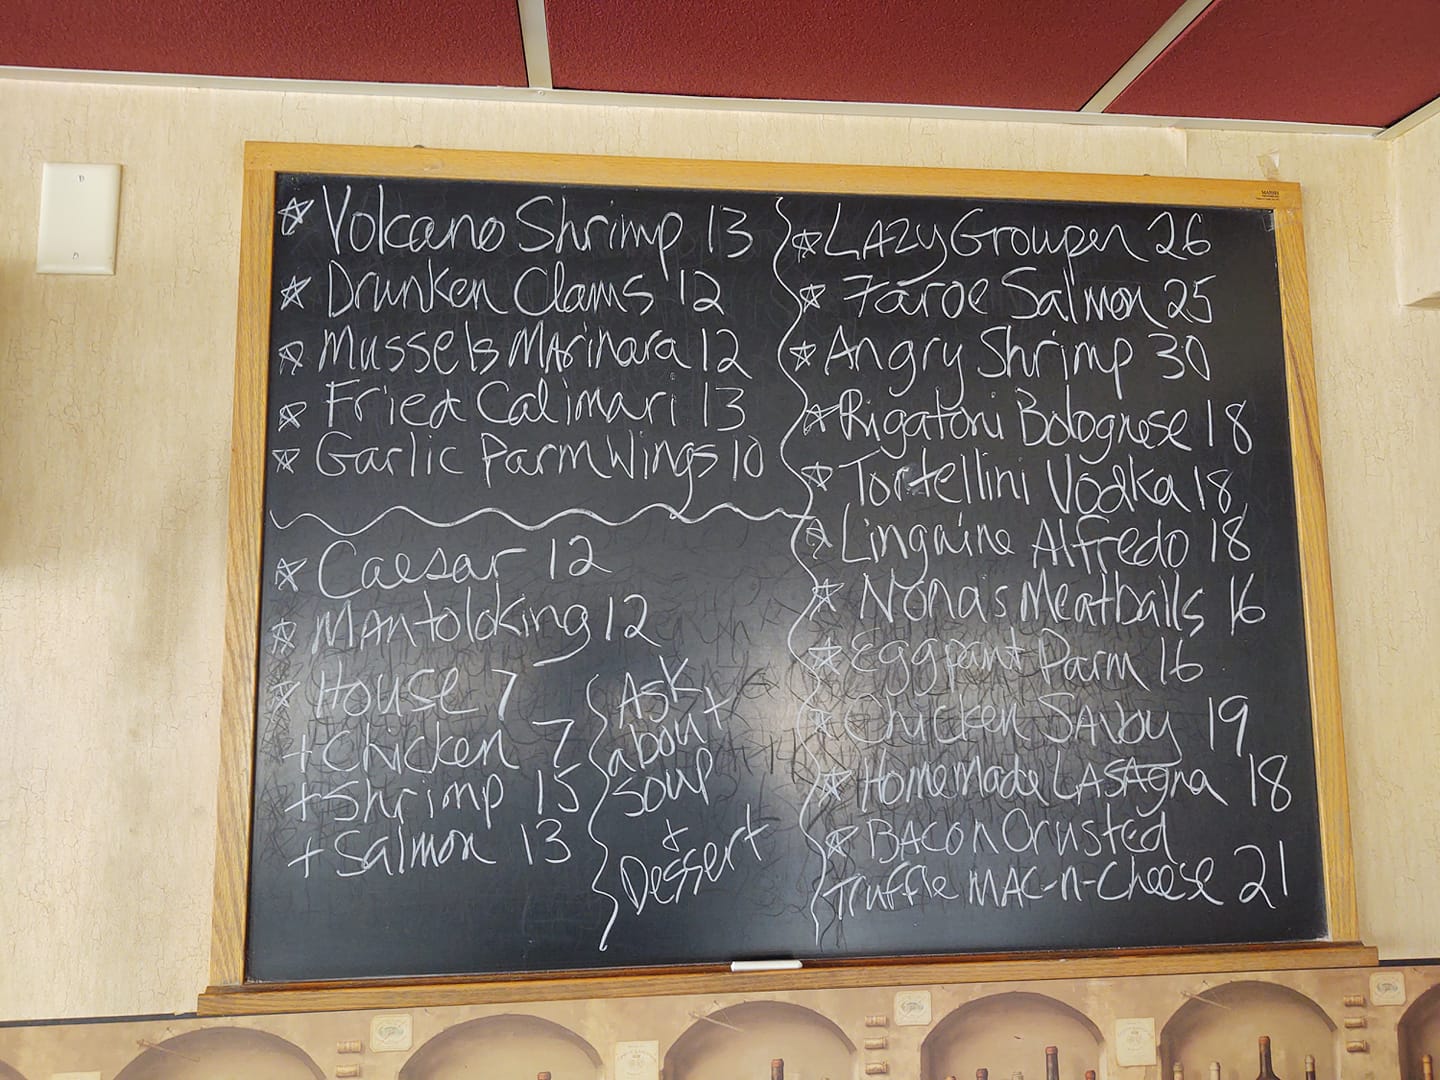 Volcano Shrimp 13
Drunken Clams 12
Mussels Marinara 12
Fried Calimari 13
Garlic Parm Wings 10
Caesar 12
Mantoloking 12
House 7
+ Chicken 7
+ Shrimp 15
+ Salmon 13
Ask
about
soup
+
Dessert
LAzy Grouper 26
Faroe Salmon 25
Angry Shrimp 30
Rigatoni Bolognese 18
Tortellini Vodka 18
Linguine Alfredo 18
Nonas Meatballs 16
Eggpant Parm 16
Chicken SAVoy 19
Homemade LASAgna 18
BACon Crusted
Truffle MAC-n-Cheese 21